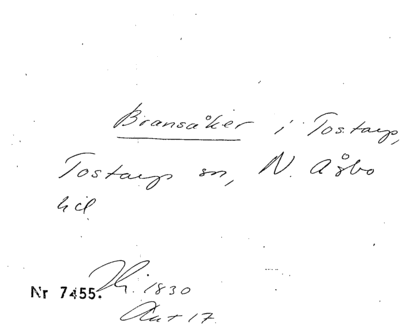 Bransåker i Tostarp,
Tostarp sn, N. Åsbo
hd
Nr 7455. 1830
Akt 17